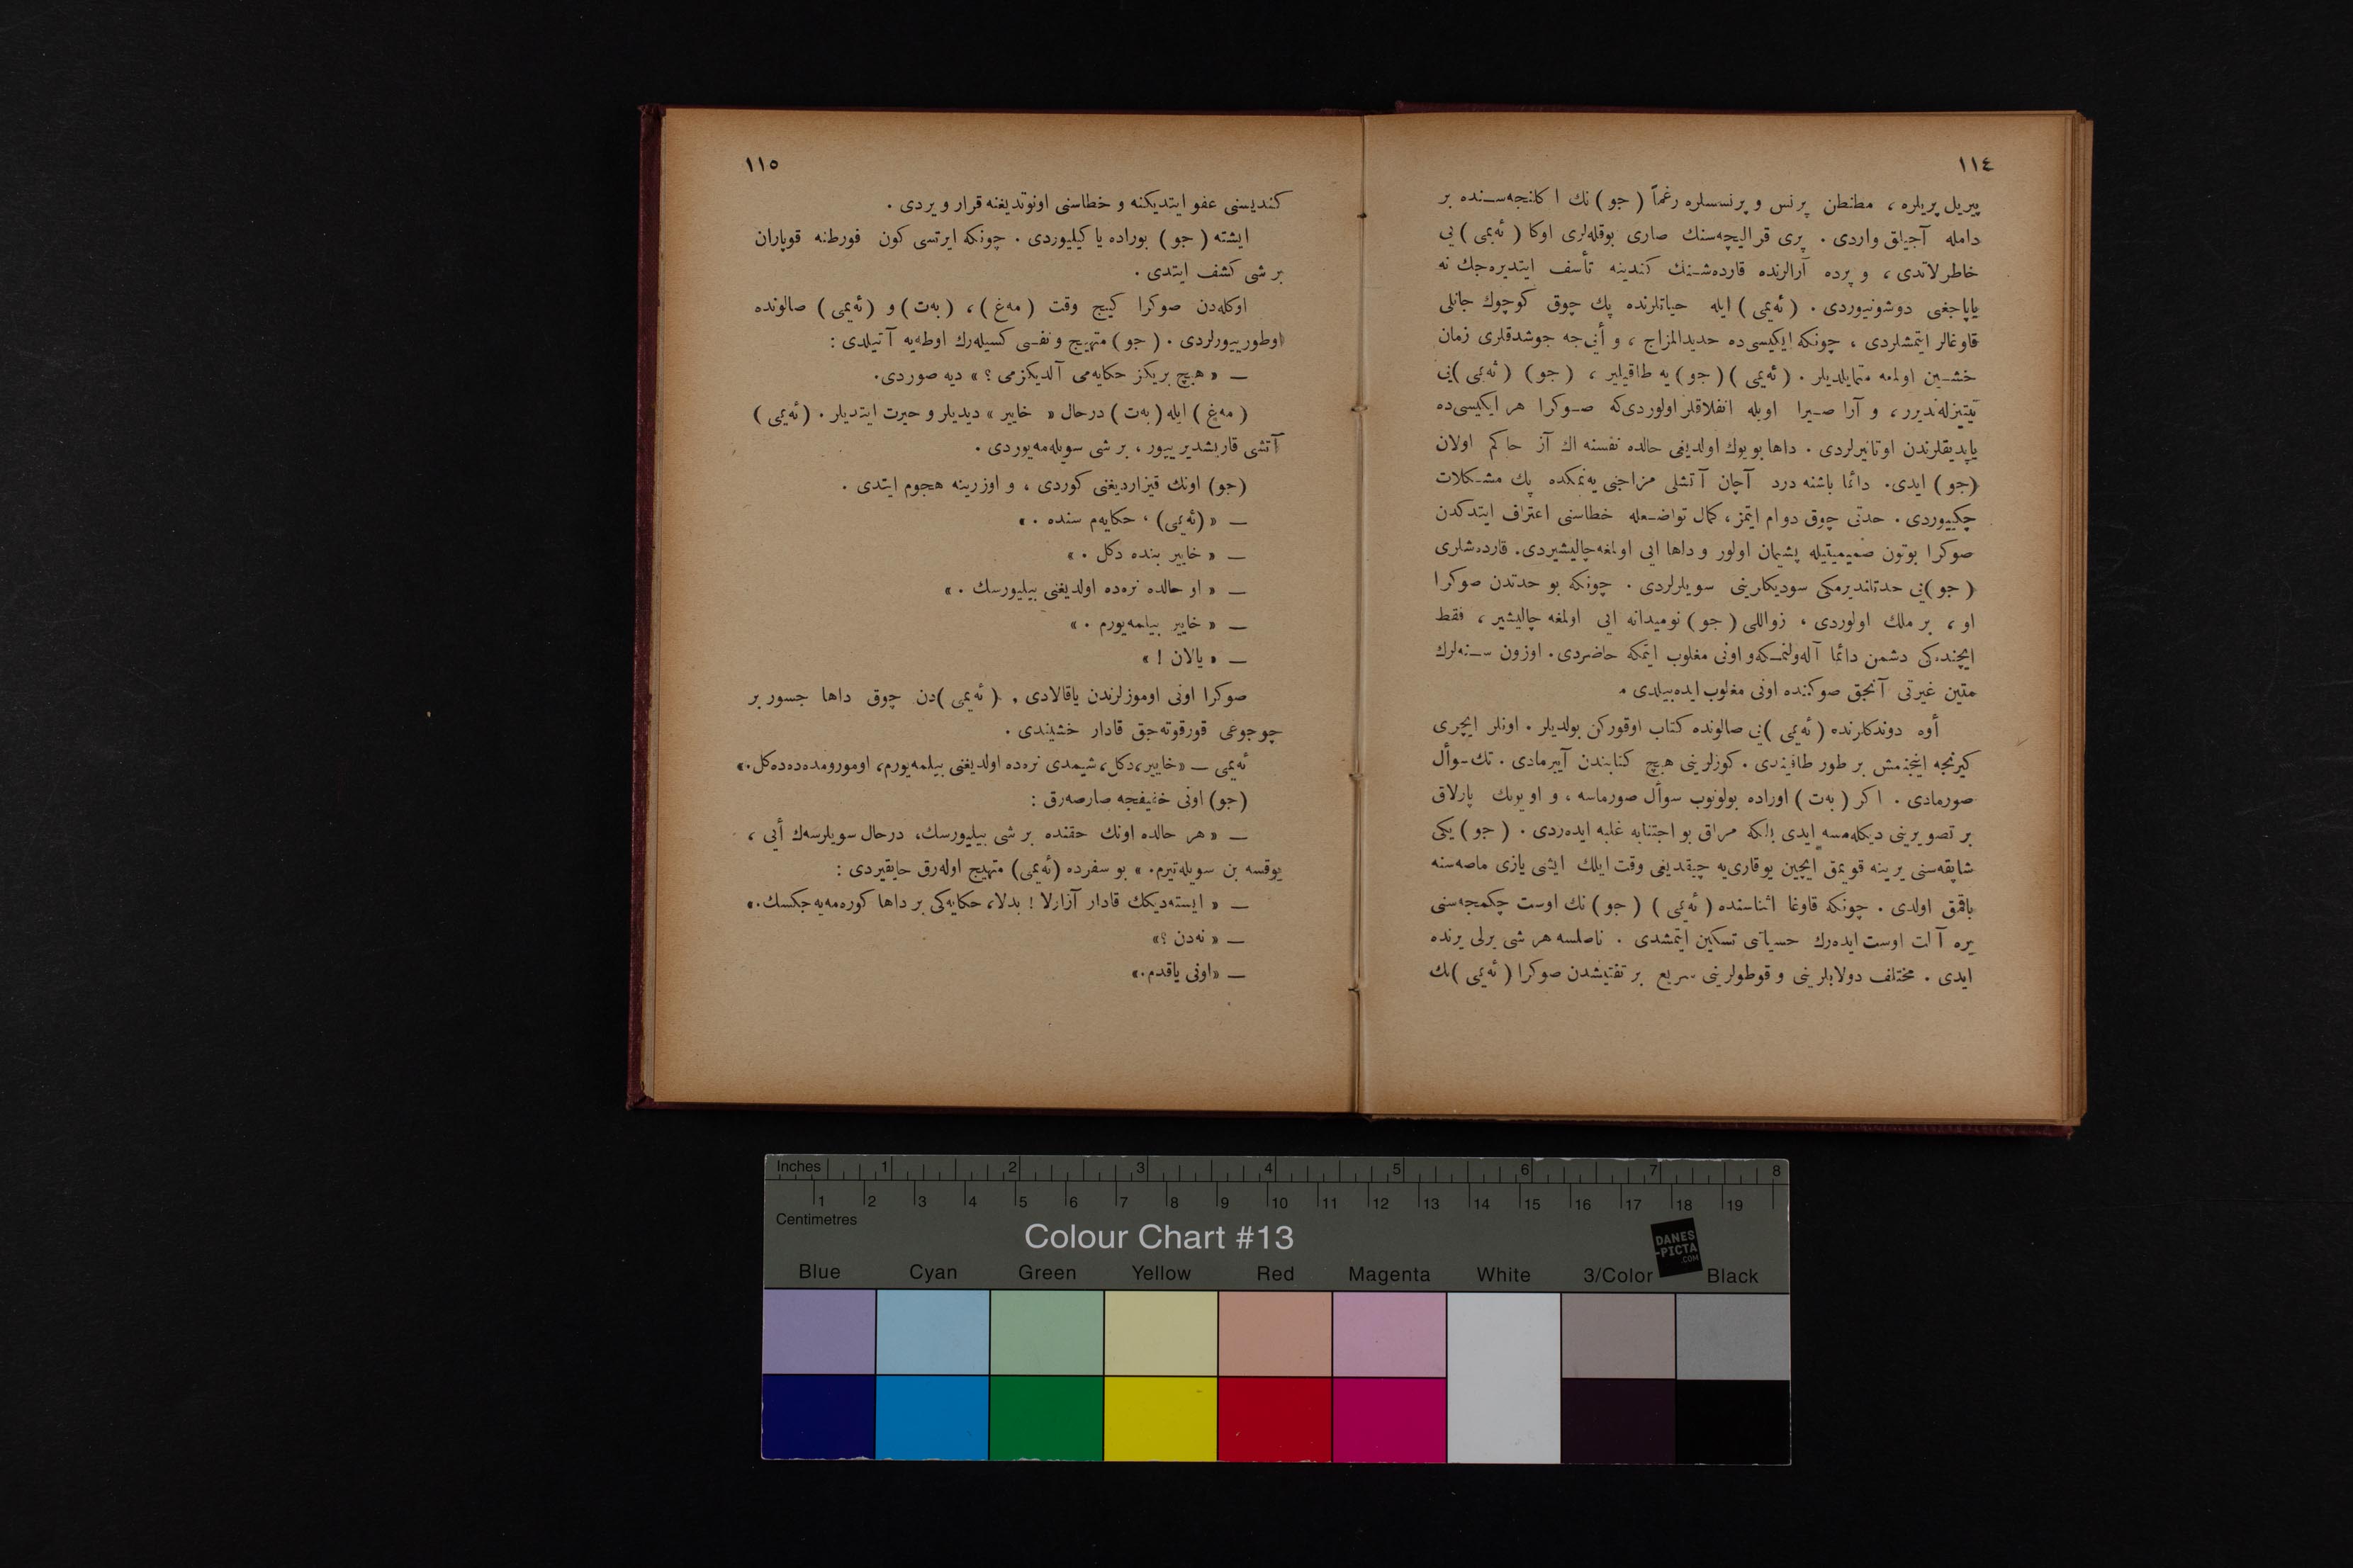 ١١٤
پیریل پریلره ، مطنطن پرنس و پرنسسلره رغماً ( جو ) نك اكلنجه‌سـنده بر
دامله آجیلق واردی . پری قرالیچه‌سنك صاری بوقله‌لری اوكا ( ئه‌یمی ) یی
خاطرلاتدی ، و پرده آرالرنده قارده‌شـنك كندینه تأسف ایتدیره‌جك نه
یاپاجغی دوشونیوردی . ( ئه‌یمی ) ایله حیاتلرنده پك چوق كوچوك جانلی
قاوغالر ایتمشلردی ، چونكه ایكیسی‌ده حدیدالمزاج ، و أنی‌جه جوشدقلری زمان
خشـین اولمه متمایلدیلر . ( ئه‌یمی ) ( جو ) یه طاقیلیر ، ( جو ) ( ئه‌یمی )یی
تیتیزله‌ندیرر ، و آرا صـیرا اویله انفلاقلر اولوردی‌كه صـوكرا هر ایكیسی‌ده
یاپدیقلرندن اوتانیرلردی . داها بویوك اولدیغی حالده نفسنه اك آز حاكم اولان
(جو ) ایدی. دائما باشنه درد آچان آتشلی مزاجنی یه‌نمكده پك مشـكلات
چكییوردی . حدتی چوق دوام ایتمز ، كمال تواضـعله خطاسنی اعتراف ایتدكدن
صوكرا بوتون صمیمیتیله پشیمان اولور و داها ایی اولمغه چالیشیردی. قارده‌شلری
( جو )یی حدتلندیرمكی سودیكلرینی سویلرلردی . چونكه بو حدتدن صوكرا
او ، بر ملك اولوردی ، زواللی ( جو ) نومیدانه ایی اولمغه چالیشیر ، فقط
ایچنده‌كی دشمن دائما آله‌ولنمـكه‌و اونی مغلوب ایتمكه حاضردی. اوزون سـنه‌لرك
متین غیرتی آنجق صوكنده اونی مغلوب ایده‌بیلدی .
أوه دوندكلرنده ( ئه‌یمی )یی صالونده كتاب اوقوركن بولدیلر . اونلر ایچری
كیرنجه اینجنمش بر طور طاقیندی . كوزلرینی هیچ كتابندن آییرمادی . تك سوأل
صورمادی . اكر ( به‌ت ) اوراده بولونوب سوأل صورماسه ، و اویونك پارلاق
بر تصویرینی دیكله‌مسه ایدی بلكه مراق بو اجتنابه غلبه ایده‌ردی . ( جو ) یكی
شاپقه‌سنی یرینه قویمق ایچین یوقاری‌یه چیقدیغی وقت ایلك ایشی یازی ماصه‌سنه
باقمق اولدی . چونكه قاوغا اثناسنده ( ئه‌یمی ) ( جو ) نك اوست چكمجه‌سنی
یره آلت اوست ایده‌رك حسیاتی تسكین ایتمشدی . ناصلسه هر شی یرلی یرنده
ایدی . مختلف دولابلرینی و قوطولرینی سریع بر تفتیشدن صوكرا ( ئه‌یمی )نك
١١٥
كندیسنی عفو ایتدیكنه و خطاسنی اونوتدیغنه قرار ویردی .
ایشته ( جو ) بوراده یاكیلیوردی . چونكه ایرتسی كون فورطنه قوپاران
بر شی كشف ایتدی .
اوكله‌دن صوكرا كیج وقت ( مه‌غ ) ، ( به‌ت ) و ( ئه‌یمی ) صالونده
اوطورییورلردی . ( جو ) متهیج و نفسی كسیله‌رك اوطه‌یه آتیلدی :
— « هیچ بریكز حكایه‌می آلدیكزمی ؟ » دیه صوردی.
( مه‌غ ) ایله ( به‌ت ) درحال « خایر » دیدیلر و حیرت ایتدیلر . ( ئه‌یمی )
آتشی قاریشدیرییور ، بر شی سویله‌مه‌یوردی .
(جو) اونك قیزاردیغنی كوردی ، و اوزرینه هجوم ایتدی .
— « (ئه‌یمی) ، حكایه‌م سنده . »
— « خایر بنده دكل . »
— « او حالده نره‌ده اولدیغنی بیلیورسك . »
— « خایر بیلمه‌یورم . »
— « یالان ! »
صوكرا اونی اوموزلرندن یاقالادی , ( ئه‌یمی )دن چوق داها جسور بر
چوجوغی قورقوته‌جق قادار خشیندی .
ئه‌یمی — «خایر،دكل، شیمدی نره‌ده اولدیغنی بیلمه‌یورم، اومورومده‌ده‌ده‌كل.»
(جو) اونی خفیفجه صارصه‌رق :
— « هر حالده اونك حقنده بر شی بیلیورسك، درحال سویلرسه‌ك أیی ،
یوقسه بن سویله‌تیرم. » بو سفرده (ئه‌یمی) متهیج اوله‌رق حایقیردی :
— « ایسته‌دیكك قادار آزارلا ! بدلا، حكایه‌كی بر داها كوره‌مه‌یه‌جكسك.»
— « نه‌دن ؟»
— «اونی یاقدم.»
Inches 1 2 3 4 5 6 7 8
1 2 3 4 5 6 7 8 9 10 11 12 13 14 15 16 17 18 19
Centimetres
Colour Chart #13
DANES
-PICTA
.COM
Blue Cyan Green Yellow Red Magenta White 3/Color Black